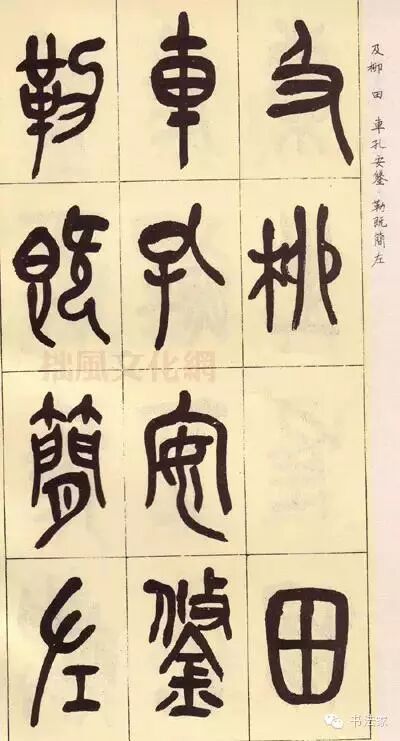 及柳 田 車孔安鋚·勒既簡左
及柳 田
車孔安鋚
勒既簡左
拙風文化網
书法家